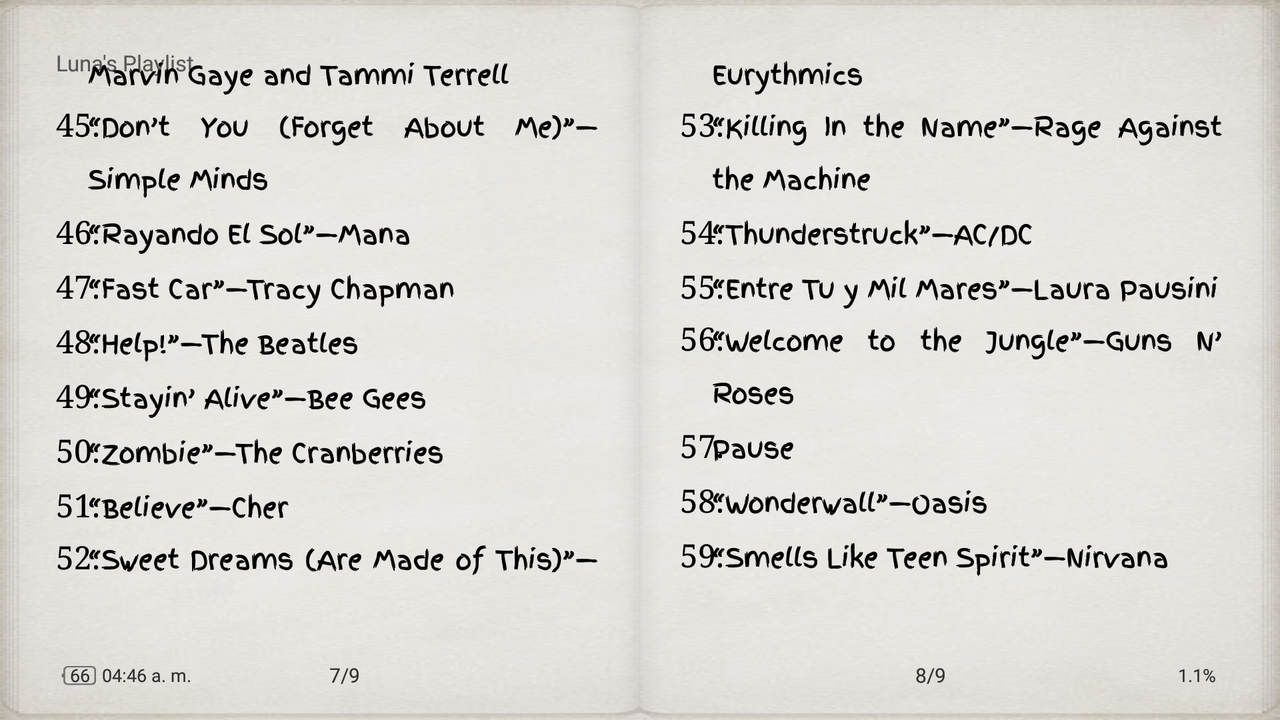 Luna's Playlist
Marvin Gaye and Tammi Terrell
45. “Don’t You (Forget About Me)”—
Simple Minds
46. “Rayando El Sol”—Mana
47. “Fast Car”—Tracy Chapman
48. “Help!”—The Beatles
49. “Stayin’ Alive”—Bee Gees
50. “Zombie”—The Cranberries
51. “Believe”—Cher
52. “Sweet Dreams (Are Made of This)”—
66 04:46 a. m. 7/9
Eurythmics
53. “Killing In the Name”—Rage Against
the Machine
54. “Thunderstruck”—AC/DC
55. “Entre Tu y Mil Mares”—Laura Pausini
56. “Welcome to the Jungle”—Guns N’
Roses
57. Pause
58. “Wonderwall”—Oasis
59. “Smells Like Teen Spirit”—Nirvana
8/9 1.1%